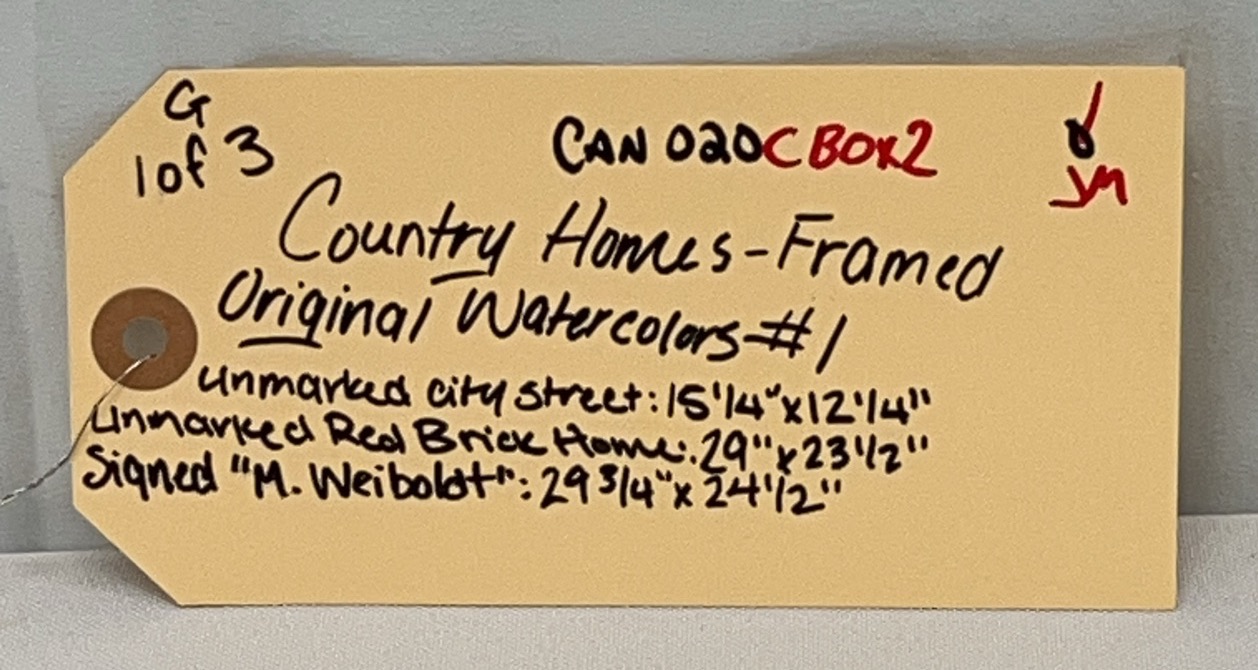 G
1 of 3
CAN 020C BOX2
JM
Country Homes-Framed
Original Watercolors-#1
unmarked city street: 15 1/4" x 12 1/4"
Unmarked Red Brick Home: 29" x 23 1/2"
Signed "M. Weiboldt": 29 3/4" x 24 1/2"